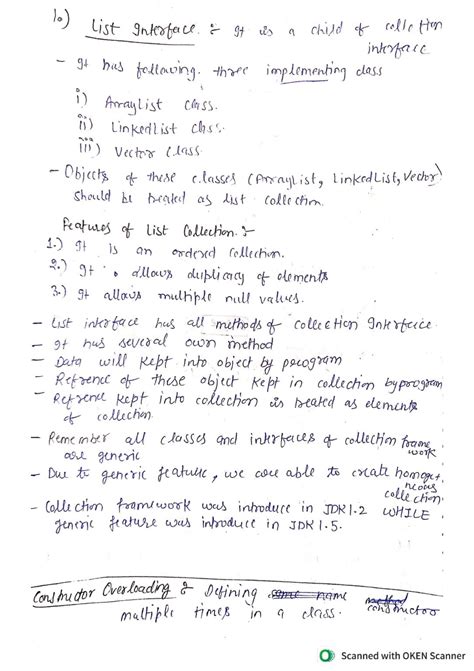 1.) List Interface :- It is a child of collection
interface
- It has following three implementing class
i) ArrayList class.
ii) LinkedList class.
iii) Vector class
- Objects of these classes (ArrayList, LinkedList, Vector)
should be treated as list collection.
Features of List Collection :-
1.) It is an ordered collection.
2.) It allows duplicacy of elements
3.) It allows multiple null values.
- List interface has all methods of collection Interface
- It has several own method
- Data will kept into object by program
- Refrence of these object kept in collection by program
- Refrence kept into collection is treated as elements
of collection.
- Remember all classes and interfaces of collection frame
work
are generic
- Due to generic feature, we are able to create homoge
neous
collection
- Collection framework was introduce in JDK 1.2 WHILE
generic feature was introduce in JDK 1.5.
Constructor Overloading : Defining same name method
constructor
multiple times in a class.
Scanned with OKEN Scanner